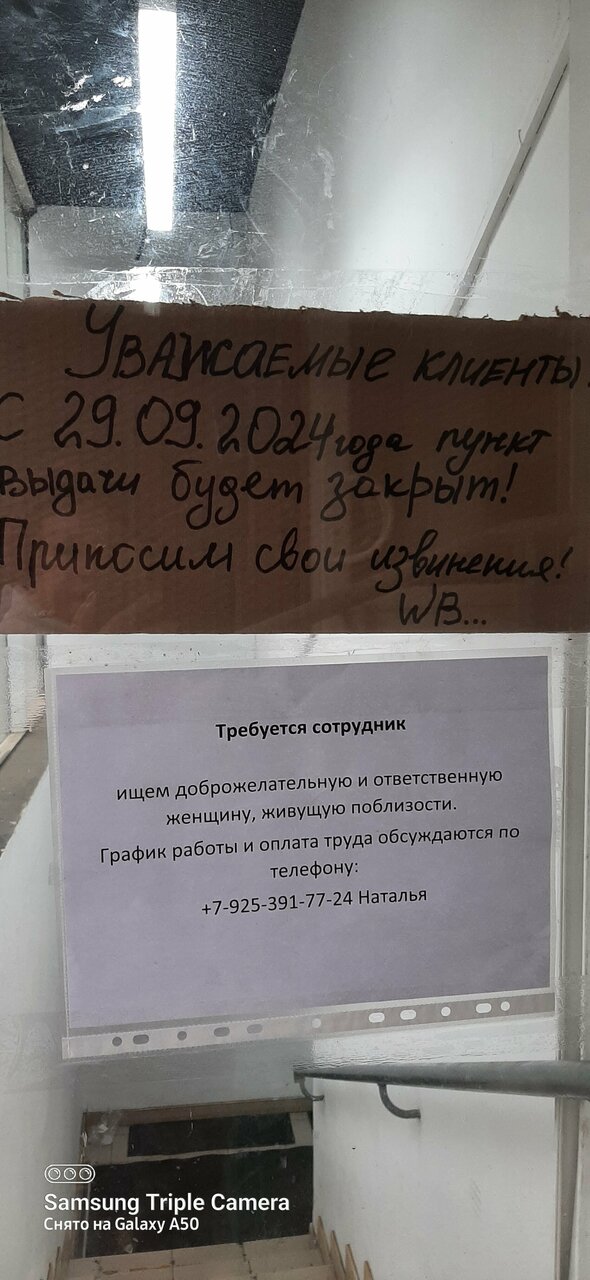 Уважаемые клиенты!
С 29.09.2024 года пункт
выдачи будет закрыт!
Приносим свои извинения!
WB...
Требуется сотрудник
ищем доброжелательную и ответственную
женщину, живущую поблизости.
График работы и оплата труда обсуждаются по
телефону:
+7-925-391-77-24 Наталья
Samsung Triple Camera
Снято на Galaxy A50